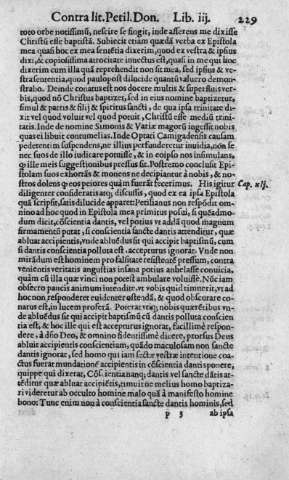 Contra lit. Petil. Don. Lib. iij. 229
toto orbe notissimũ, nescire se fingit, inde asserens me dixisse
Christũ esse baptistã. Subiecit etiam quædã verba ex Epistola
mea quasi hoc ex mea sensisse dixerim, quod ex vestra & ipsius
dixi, & copiosissima atrocitate inuectus est, quasi in me qui hoc
dixerim cum illa quã reprehendit non sit mea, sed ipsius & ve-
stra sententia, quod paulo post dilucide quãtũ valuero demon-
strabo. Deinde conatus est nos docere multis & superfluis ver-
bis, quod nõ Christus baptizet, sed in eius nomine baptizetur,
simul & patris & filij & spiritus sancti, de qua ipsa trinitate di-
xit vel quod voluit vel quod potuit, Christũ esse mediũ trini-
tatis. Inde de nomine Simonis & Variæ magorũ ingessit nobis
quas ei libuit contumelias. Inde Optati Camigadensis causam
pedetentim suspendens, ne illius perfunderetur inuidia, non se
nec suos de illo iudicare potuisse, & in eo ipso nos insimulans,
q̃ ille meis suggestionibus pressus sit. Postremo conclusit Epi-
stolam suos exhortãs & monens ne decipiantur à nobis, & no-
stros dolens q̃ eos peiores quàm fuerãt fecerimus. His igitur Cap. xlj.
diligenter consideratis, discussis, quod ex ea ipsa Epistola
quã scripsit, satis dilucide apparet: Petilianus non respõdit om-
nino ad hoc quod in Epistola mea primitus posui, si quẽadmo-
dum dicit, cõscientia dantis, vel potius vt addã quod magnum
firmamentũ putat, si conscientia sancte dantis attenditur, quæ
abluat accipientis, vnde abluẽdus sit qui accipit baptismũ, cum
dantis conscientia polluta est, accepturus ignorat: Vnde non
mirãdum est hominem pro falsitate resistentẽ pressum, contra
venientis veritatis angustias insana potius anhelasse conuicia,
quàm cũ illa quæ vinci non potest ambulare voluisse. Nũc iam
obsecro paucis animum intendite, vt vobis quid timuerit, vt ad
hoc non responderet euidenter ostẽdã, & quod obscurare co-
natus est, in lucem proferã.
de abluẽdus sit qui accipit baptismũ cũ dantis polluta conscien
tia est, & hoc ille qui est accepturus ignorat, facillimè respon-
dere, à dño Deo, & omnino fidentissimè dicere, prorsus Deus
abluit accipientis conscientiam, quãdo maculosam non sancte
dantis ignorat, sed homo qui iam sectæ vestræ intentione coa-
ctus fuerat mundationẽ accipientis in cõscientia dantis ponere,
quippe qui dixerat, Cõscientia nanq; dantis, vel sancte dãtis at-
tẽditur quæ abluat accipiẽtis, timuit ne melius homo baptiza-
ri videretur ab occulto homine malo quã à manifesto homine
bono: Tunc enim nõ à conscientia sancte dantis hominis, sed
p 3 ab ipsa